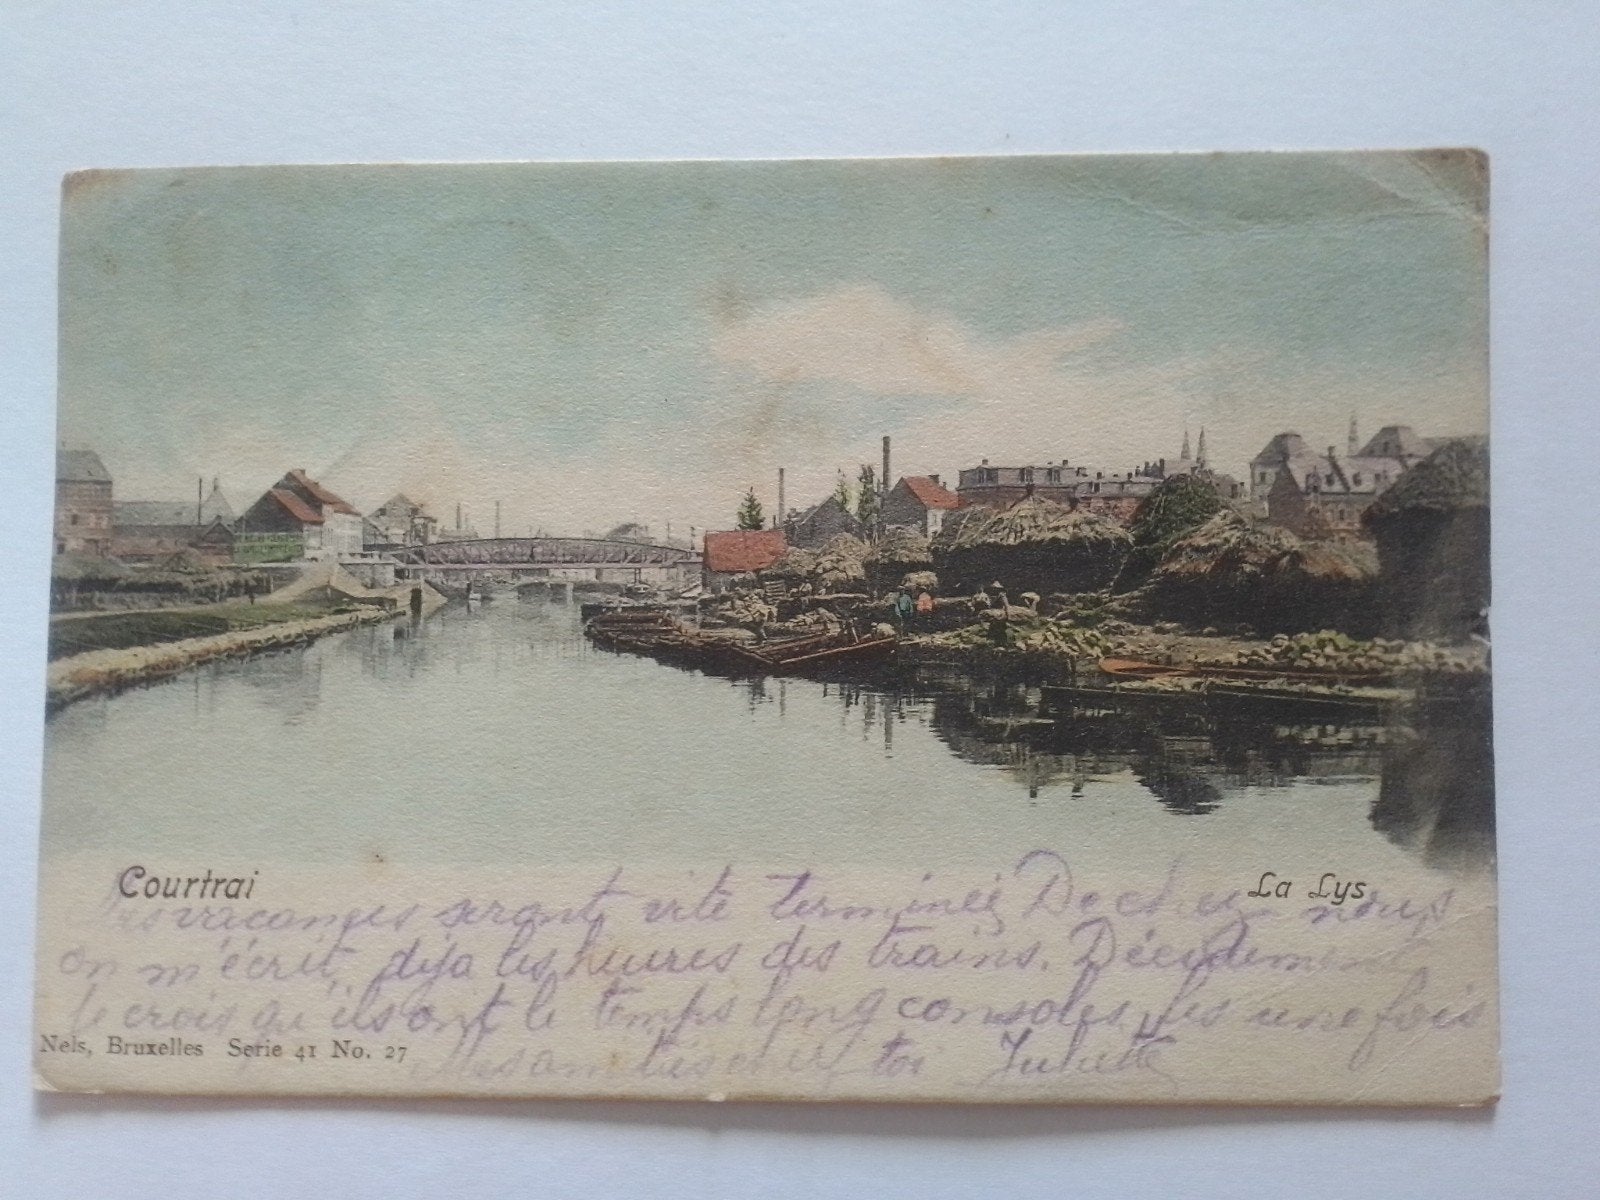 Courtrai
La Lys
vacances seront vite terminée De chez nous
on m'écrit, déja les heures des trains. Décidement
Je crois qu'ils ont le temps long consoles les une fois
Nels, Bruxelles Serie 41 No. 27
chez toi Juliette